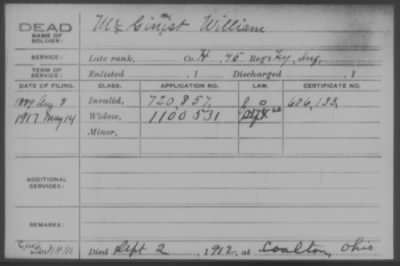 DEAD
NAME OF SOLDIER: McGinist William
SERVICE: Late rank, Co. H, 45 Reg't Ky. Inf.
TERM OF SERVICE: Enlisted , 1 Discharged , 1
DATE OF FILING. CLASS. APPLICATION NO. LAW. CERTIFICATE NO.
1889 Aug 8 Invalid, 720,857 606,133
1917 May 14 Widow, 1100531
Minor,
ADDITIONAL SERVICES:
REMARKS:
Died Sept 2, 1912, at Coalton, Ohio